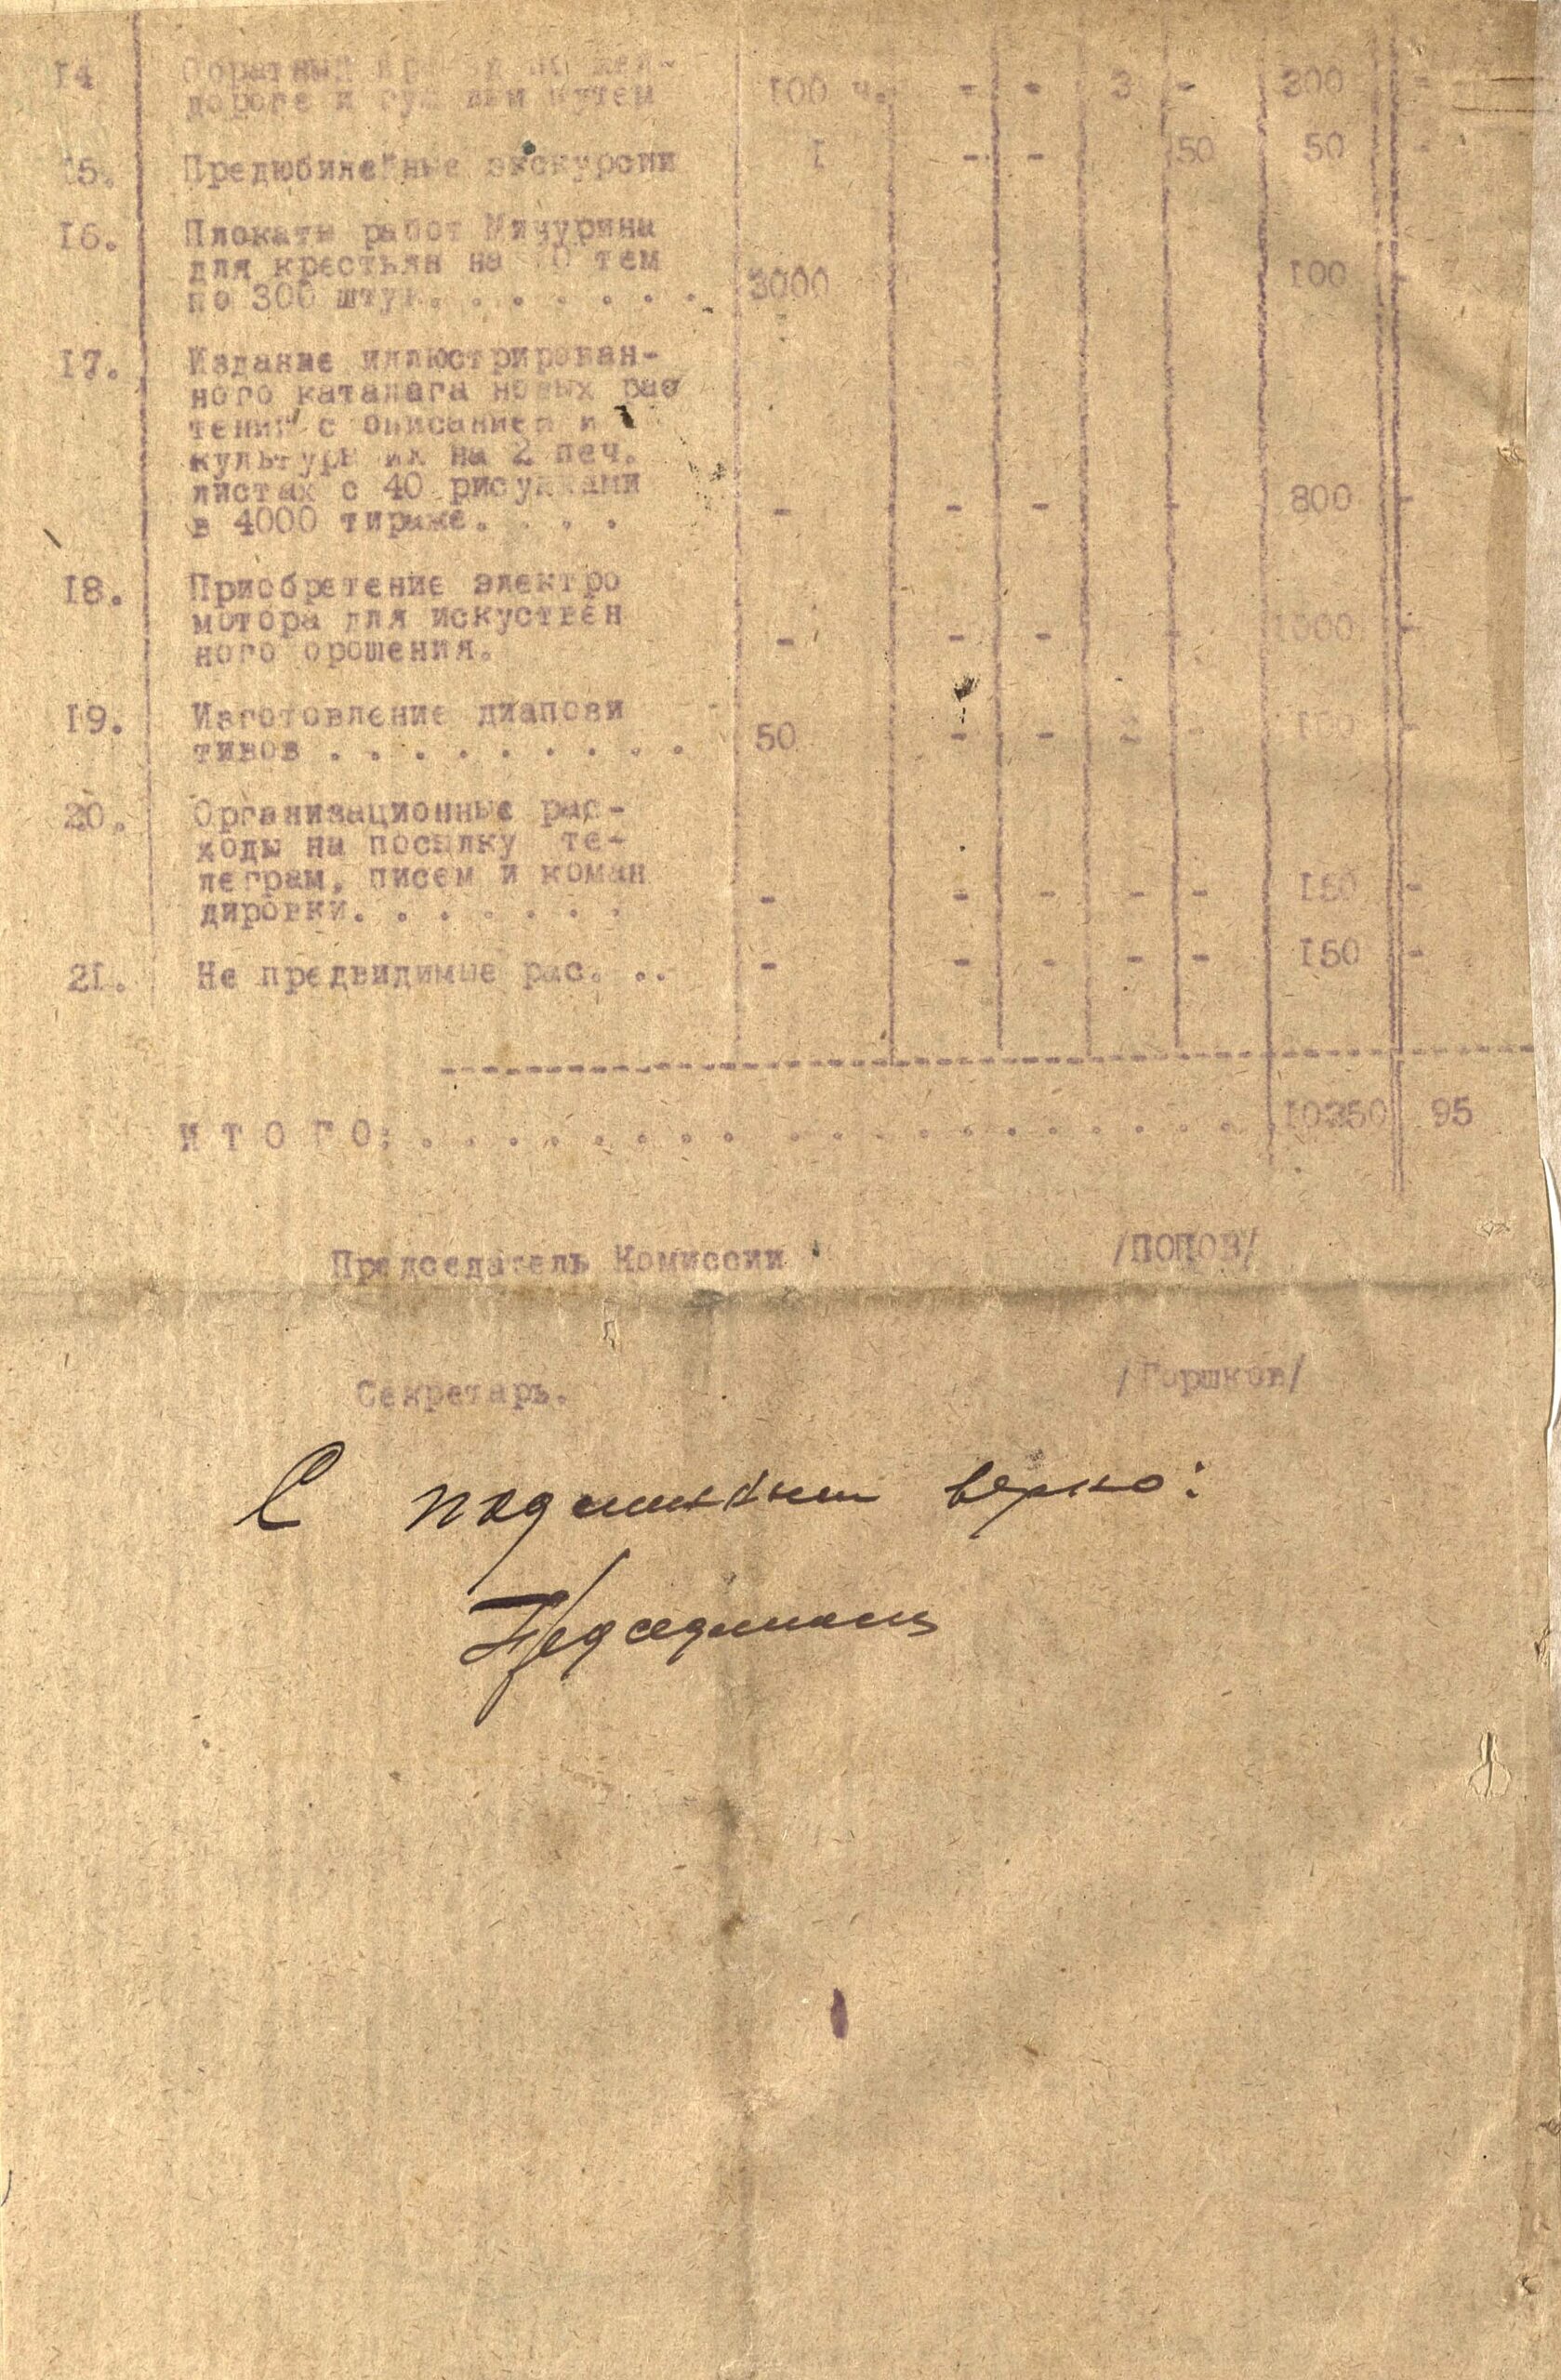 14 Обратный проезд по жел-
дороге и гужевым путем 100 ч. - - 3 - 300 -
15. Предюбилейные экскурсии I - - 50 50 -
16. Плокаты работ Мичурина
для крестьян на 10 тем
по 300 штук. . . . . . . 3000 100 -
17. Издание иллюстрирован-
ного каталага новых рас
тений с описанием и
культуры их на 2 печ.
листах с 40 рисунками
в 4000 тираже. . . . - - - - 800 -
18. Приобретение электро
мотора для искуствен
ного орошения. - - - - 1000 -
19. Изготовление диапози
тивов . . . . . . . . . 50 - - 2 - 100 -
20. Организационные рас-
ходы на посылку те-
леграм, писем и коман
дировки. . . . . . . - - - - - 150 -
21. Не предвидимые рас. .. - - - - - 150 -
И Т О Г О: . . . . . . . . . . . . . . . . . . . 10350 95
Председатель Комиссии /ПОПОВ/
Секретарь. /Горшков/
С подлинным верно: